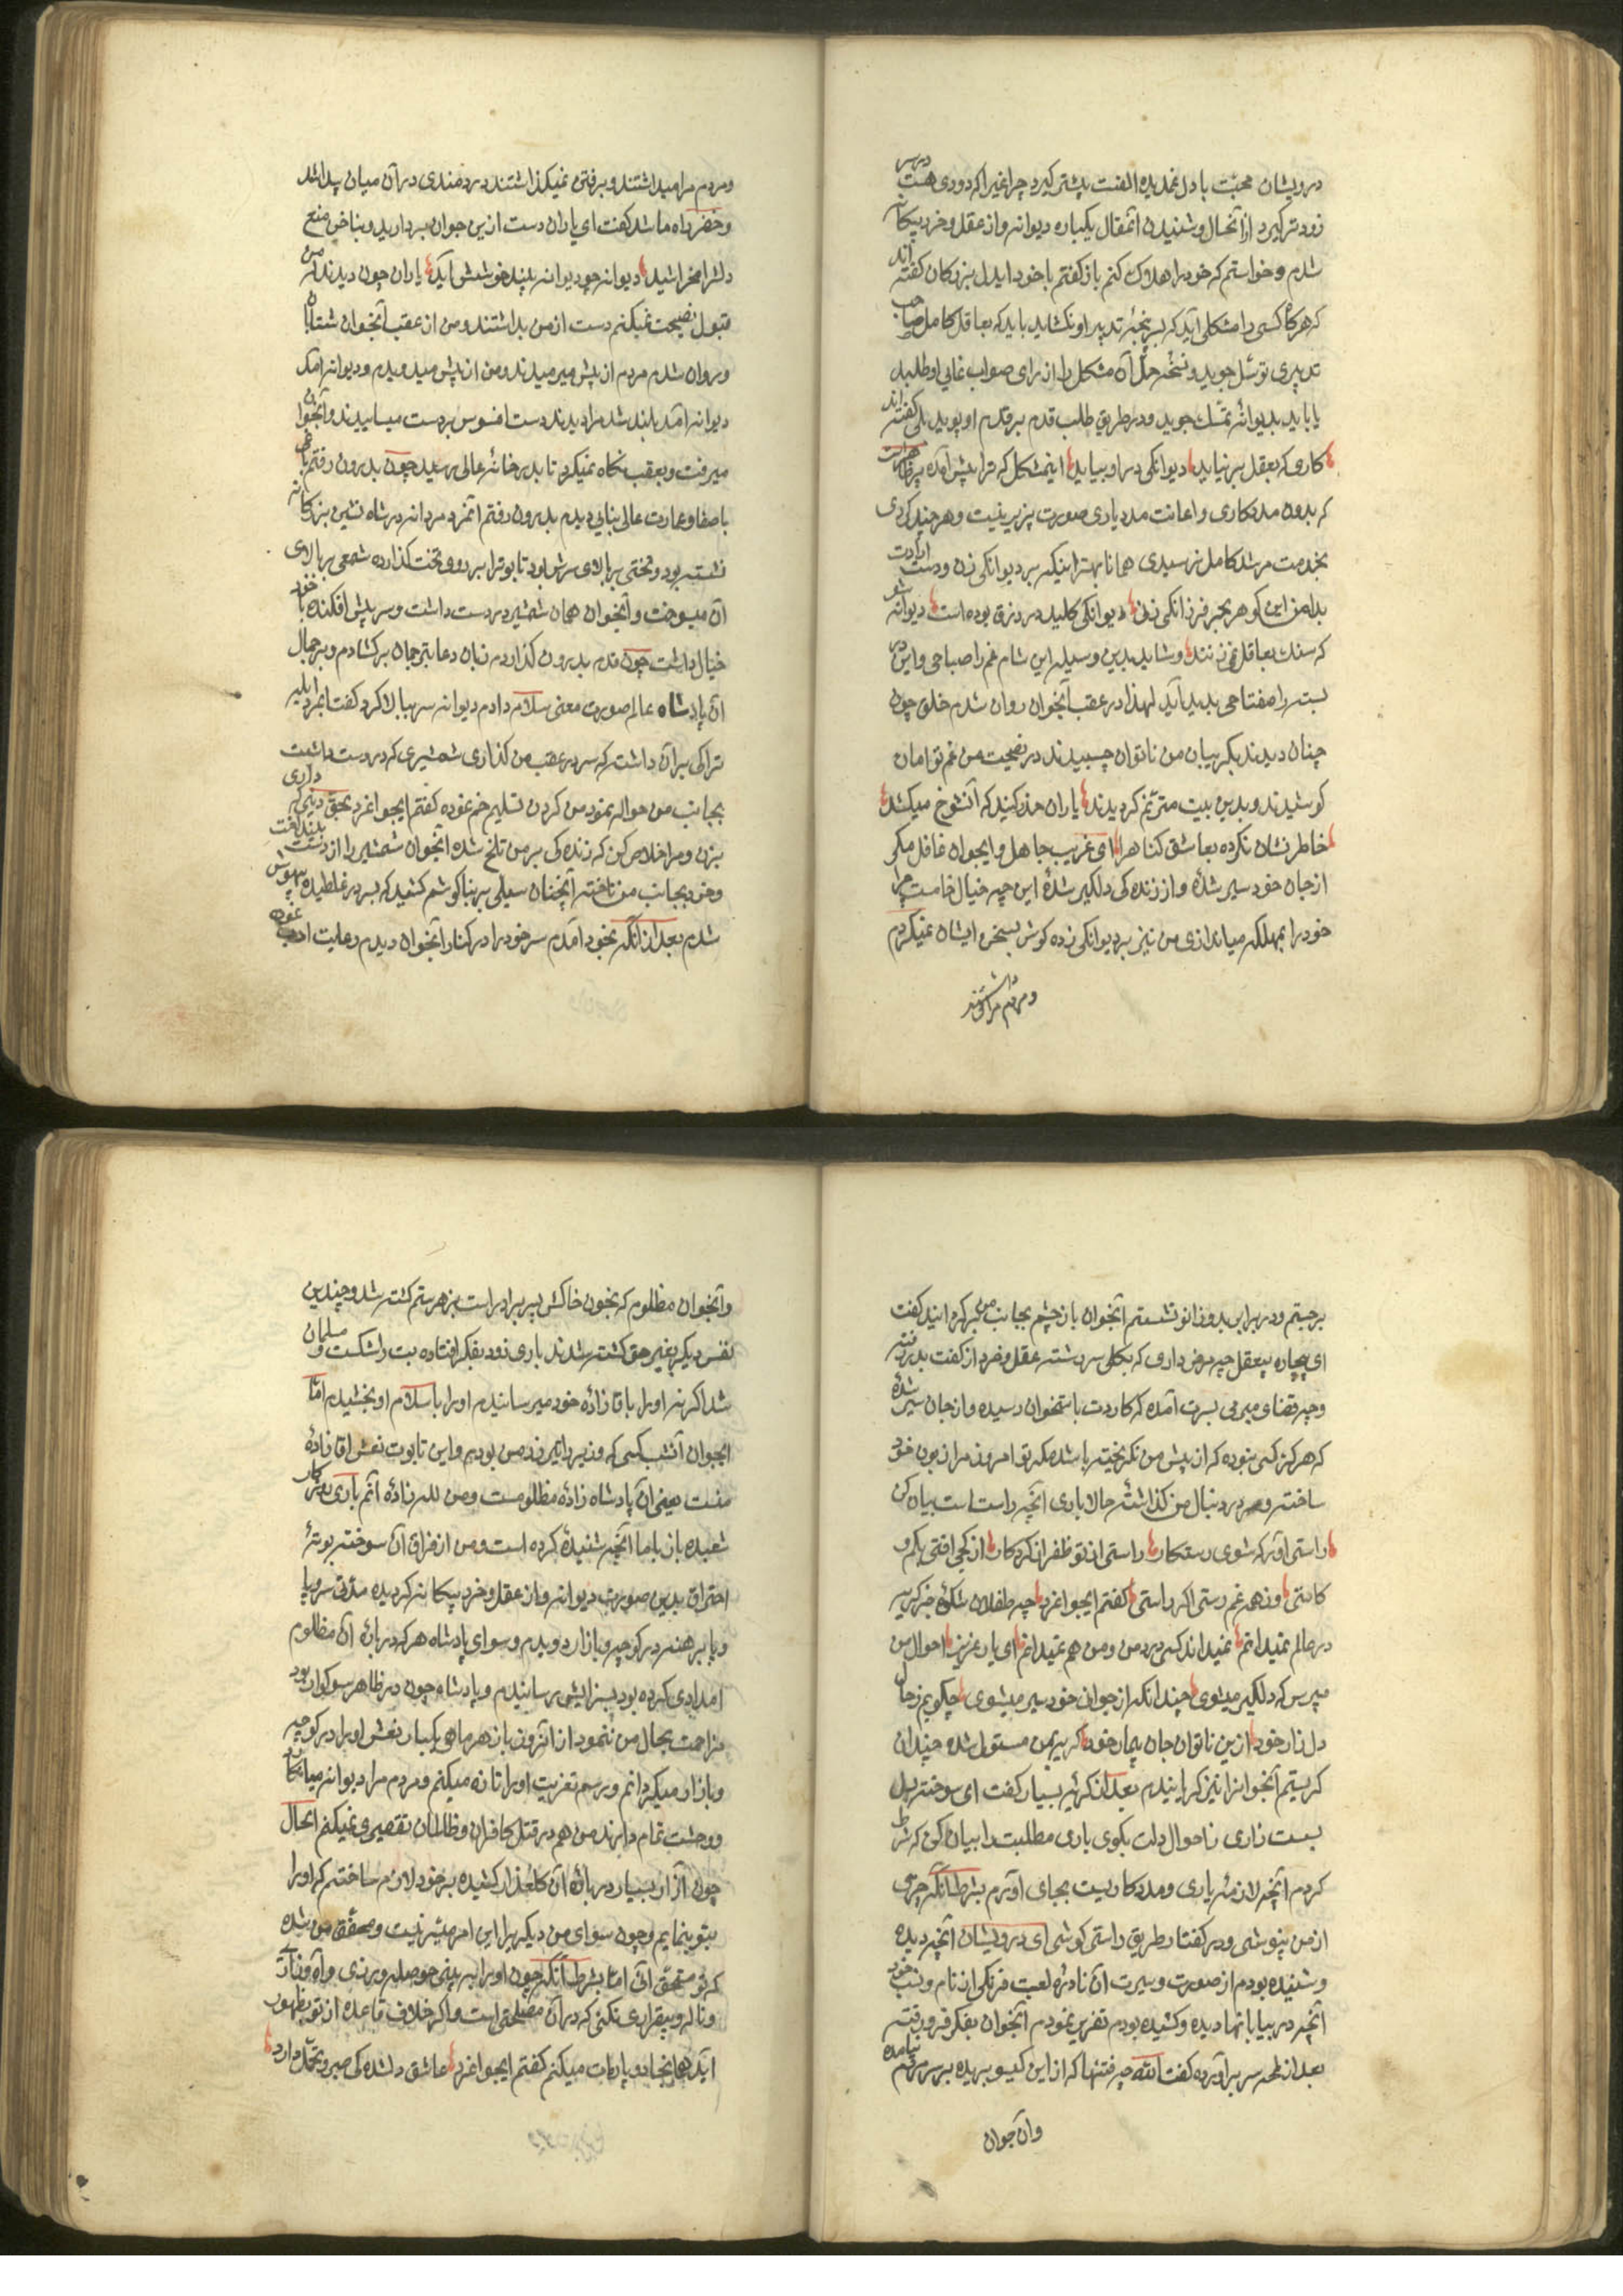 درویشان محبت با دل غمدیده الفت بیشتر گیرد چراغیرا که دودی هست در سر
زودتر گیرد از آنحال و شنیدن آنمقال یکباره دیوانه و از عقل و خرد بیگانه
شدم و خواستم که خود را هلاک کنم باز گفتم با خود ایدل بزرکان گفته اند
که هرکاه کسی را مشکلی آید که بسرپنجهٔ تدبیر او نکشاید باید که بعاقل کامل صاحب
تدبیری توسّل جوید و نسخهٔ حلّ آن مشکل را از رای صواب نمای او طلبد
یا باید بدیوانهٔ تمسّک جوید و در طریق طلب قدم بر قدم او پوید بلی گفته اند
کاری که بعقل برنیاید دیوانکی در او بباید اینمشکل که ترا پیش آمده پر ظاهرست
که بدون مددکاری و اعانت مدد یاری صورت پزیر نیست و هر چند کردی
بخدمت مرشد کامل نرسیدی همانا بهتر اینکه بر دیوانکی زن و دست ارادت
بدامن این کوهر بحر فرزانکی زن دیوانکی کلید در رزق بوده است دیوانه شو
که سنک بعاقل نمی‌زنند و شاید بدین وسیله این شام غم را صباحی و این در
بسته را مفتاحی پدید آید لهذا در عقب آنجوان روان شدم خلق چون
چنان دیدند بکریبان من ناتوان چسبیدند در نصیحت من غم توامان
کوشیدند و بدین بیت مترنّم کردیدند یاران حذر کنید که آنشوخ میکشد
خاطرنشان نکرده بعاشق کناه را ای غریب جاهل و ایجوان غافل مکر
از جان خود سیر شدهٔ و از زنده کی دلکیر شدهٔ این چه خیال خامست چرا
خود را بمهلکه میاندازی من نیز بر دیوانکی زده کوش بسخن ایشان نمیکردم
و مردم مرا میداشتند
و مردم مرا میداشتند و برفتن نمیکذاشتند دردمندی در آن میان پیدا شد
و خضر راه ما شد گفت ای یاران دست از این جوان بردارید و بناخن منع
دلشرا مخراشید دیوانه چو دیوانه بیند خوشش آید یاران چون دیدند که من
قبول نصیحت نمیکنم دست از من بداشتند و من از عقب آنجوان شتابان
و روان شدم مردم از پیش میرمیدند و من از پیش میدویدم و دیوانه آمد
دیوانه آمد بلند شد مرا دیدند دست افسوس بر دست میساییدند و آنجوان
میرفت و بعقب نکاه نمیکرد تا بدر خانهٔ عالی رسید چون بدرون رفتم باغی
باصفا و عمارت عالی بنایی دیدم بدرون رفتم آنمرد مردانه در شاه نشین بزرکانه
نشسته بود و تختی بر بالای سرش بود تابوت را بر روی تخت کذارده شمعی بر بالای
آن میسوخت و آنجوان همان شمشیر در دست داشت و سر پیش افکنده با خود
خیال داشت چون قدم بدرون کذاردم زبان دعا بترجمان برکشادم و بر جمال
آن پادشاه عالم صورت معنی سلام دادم دیوانه سر ببالا کرد گفت ایمرد ابله
ترا کی بر آن داشت که سر در عقب من کذاری شمشیری که در دست داشت
بجانب من حواله نمود من کردن تسلیم خم نموده گفتم ایجوانمرد بحق دینی که داری
بزن و مرا خلاص کن که زنده کی بر من تلخ شده آنجوان شمشیر را از دست بینداخت
و خود بجانب من تاخته آنچنان سیلی بر بناکوشم کشید که بسر در غلطیده بیهوش
شدم بعد از آنکه بخود آمدم سر خود را در کنار آنجوان دیدم رعایت ادب نموده
برجستم و در برابر بدو زانو نشستم آنجوان باز چشم بجانب من کردانید گفت
ای بیچاره بیعقل چه مرض داری که بکلی سررشته عقل و خرد از کفت بدر رفته
و چه قضای مبرمی بسرت آمده که کاردت باستخوان رسیده و از جان سیر شدهٔ
که هرکز کسی نبوده که از پیش من نکریخته باشد مکر تو امروز مرا زبون خود
ساخته و سر در دنبال من کذاشتهٔ حالا باری آنچه راست است بیان کن
راستی آور که شوی رستکار راستی از تو ظفر از کردکار از کجی افتی بکم و
کاستی وز همه غم رستی اکر راستی گفتم ایجوانمرد چه طفلان شکوهٔ جز کریه
در عالم نمیدانم نمیداند کسی درد من و من هم نمیدانم ای یار عزیز احوال من
مپرس که دلکیر میشوی چندانکه از جوانی خود سیر میشوی چکویم ز حال
دل زار خود ازین ناتوان جان بیمار خود کریه بمن مستولی شده چندان
کریستم آنجوانرا نیز کریانیدم بعد از کریهٔ بسیار گفت ای سوخته دل
بست زاری ز احوال دلت بکوی باری مطلبت را بیان کن که شرط
کردم آنچه لازمهٔ یاری و مددکاریست بجای آورم بشرط آنکه حرفی
از من نپوشی و در کفتار طریق راستی کوشی ای درویشان آنچه دیده
و شنیده بودم از صورت و سیرت آن نادره لعبت فرنکی از نام و نسب خود
آنچه در بیابانها دیده و کشیده بودم تقریر نمودم آنجوان بفکر فرو رفته
بعد از لمحه سر برآورده گفت الله چه فتنها که از این کیسو بریده بر سر مردم نیامده
و آن جوان
و آنجوان مظلوم که بخون خاکش بسر برابر است بزهر ستم کشته شد و چندین
نفس دیکر بغیر حق کشته شدند باری زود بفکر افتاده بت را شکست و مسلمان
شد اکرنه او را باقازادهٔ خود میرسانیدم او را باسلام او بخشیدم امّا
ایجوان آنشب کسی که وزیر را تیر زد من بودم و این تابوت نعش اقازادهٔ
منست یعنی آن پادشاه زادهٔ مظلومست و من للـه زادهٔ آنم باری روزکار
شعبده باز با ما آنچه شنیدهٔ کرده است و من از فراق آن سوخته بوتهٔ
احتراق بدین صورت دیوانه و از عقل و خرد بیکانه کردیده مدّتی سر و پا
و پا برهنه در کوچه و بازار دویدم و سوای پادشاه هر که دربارهٔ آن مظلوم
امدادی کرده بود بسزایش رسانیدم و پادشاه چون در ظاهر سوکوار بود
مزاحمت بحال من ننمود از آنروز باز هر ماهی یکبار نعش او را در کوچه
و بازار میکردانم و رسم تعزیت او را تازه میکنم و مردم مرا دیوانه میدانند
و وحشت تمام دارند من هم در قتل کافران و ظالمان تقصیری نمیکنم الحال
چون آزار بسیار دربارهٔ آن کلعذار کشیده بر خود لازم ساختم که او را
بتو بنمایم و چون سوای من دیکر برا این امر میسّر نیست و محقّق من شده
که تو مستحقّ آنی امّا بشرط آنکه چون او را ببینی حوصله ورزی و آه و زارت
و ناله و بیقراری نکنی که در آن مصلحتی است و اکر خلاف قاعده از تو بظهور
آید همانجا دو پاره‌ات میکنم گفتم ایجوانمرد عاشق دلشده کی صبر و تحمّل دارد